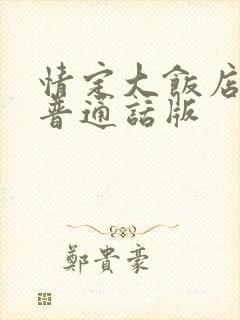 情定大飯店
普通話版
鄭貴豪